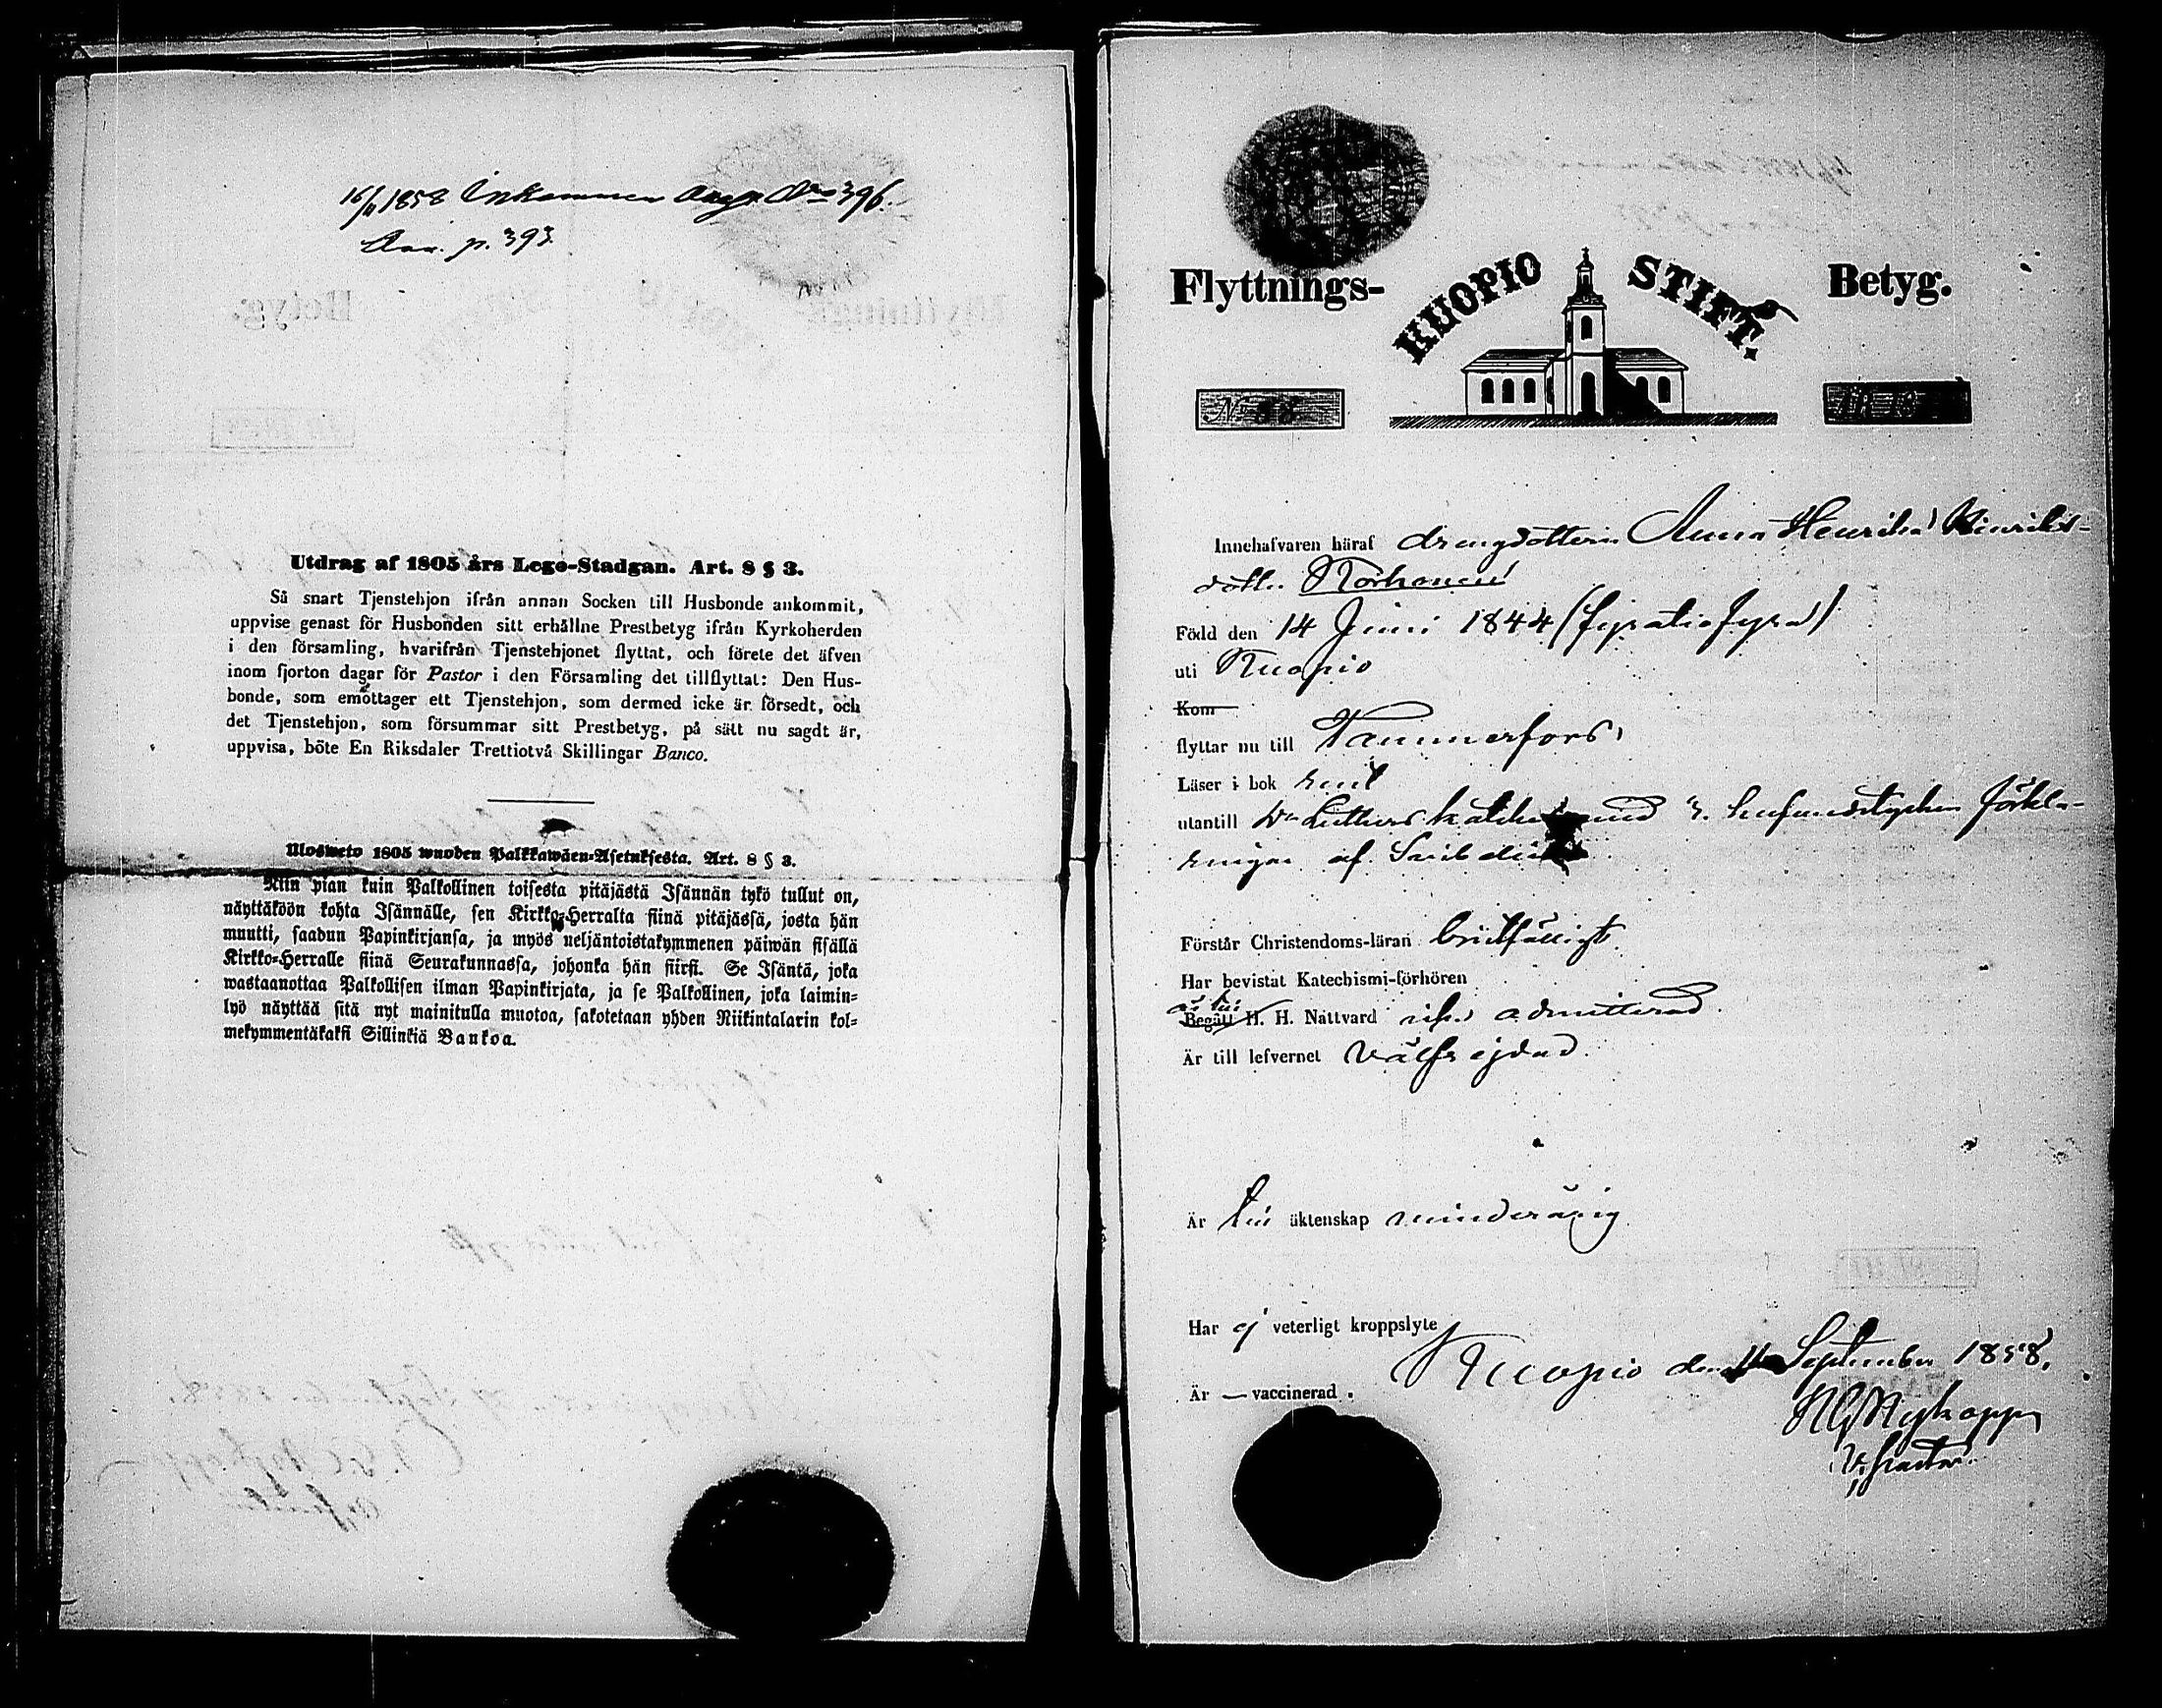 16/11 1858 Inkommen No 396.
p. 393.
Utdrag af 1805 års Lego-Stadgan. Art. 8 § 3.
Så snart Tjenstehjon ifrån annan Socken till Husbonde ankommit,
uppvise genast för Husbonden sitt erhållne Prestbetyg ifrån Kyrkoherden
i den församling, hvarifrån Tjenstehjonet flyttat, och förete det äfven
inom fjorton dagar för Pastor i den Församling det tillflyttat: Den Hus-
bonde, som emottager ett Tjenstehjon, som dermed icke är försedt, och
det Tjenstehjon, som försummar sitt Prestbetyg, på sätt nu sagdt är,
uppvisa, böte En Riksdaler Trettiotvå Skillingar Banco.
Ulosweto 1805 wuoden Palkkawäen-Asetuksesta. Art. 8 § 3.
Niin pian kuin Palkollinen toisesta pitäjästä Isännän tykö tullut on,
näyttäköön kohta Isännälle, sen Kirkko-Herralta siinä pitäjässä, josta hän
muutti, saadun Papinkirjansa, ja myös neljäntoistakymmenen päiwän sisällä
Kirkko-Herralle siinä Seurakunnassa, johonka hän siirsi. Se Isäntä, joka
wastaanottaa Palkollisen ilman Papinkirjata, ja se Palkollinen, joka laimin-
lyö näyttää sitä nyt mainitulla muotoa, sakotetaan yhden Riikintalarin kol-
mekymmentäkaksi Sillinkiä Bankoa.
Flyttnings- KUOPIO STIFT. Betyg.
No 88 År 18
Innehafvaren häraf drengdottern Anna Henrika Hinriks-
dotter Korhonen
Född den 14 Juni 1844 (fyratiofyra)
uti Kuopio
Kom
flyttar nu till Tammerfors
Läser i bok rent
utantill Dr Luthers med 3. hufvudstycken förkla-
ringar af Svibelii
Förstår Christendoms-läran enfälligt
Har bevistat Katechismi-förhören
är till
Begått H. H. Nattvard icke admitterad.
Är till lefvernet välfrejdad.
Är till äktenskap minderårig
Har ej veterligt kroppslyte
Kuopio den September 1858.
Är — vaccinerad.
Nykopp
V. pastor.